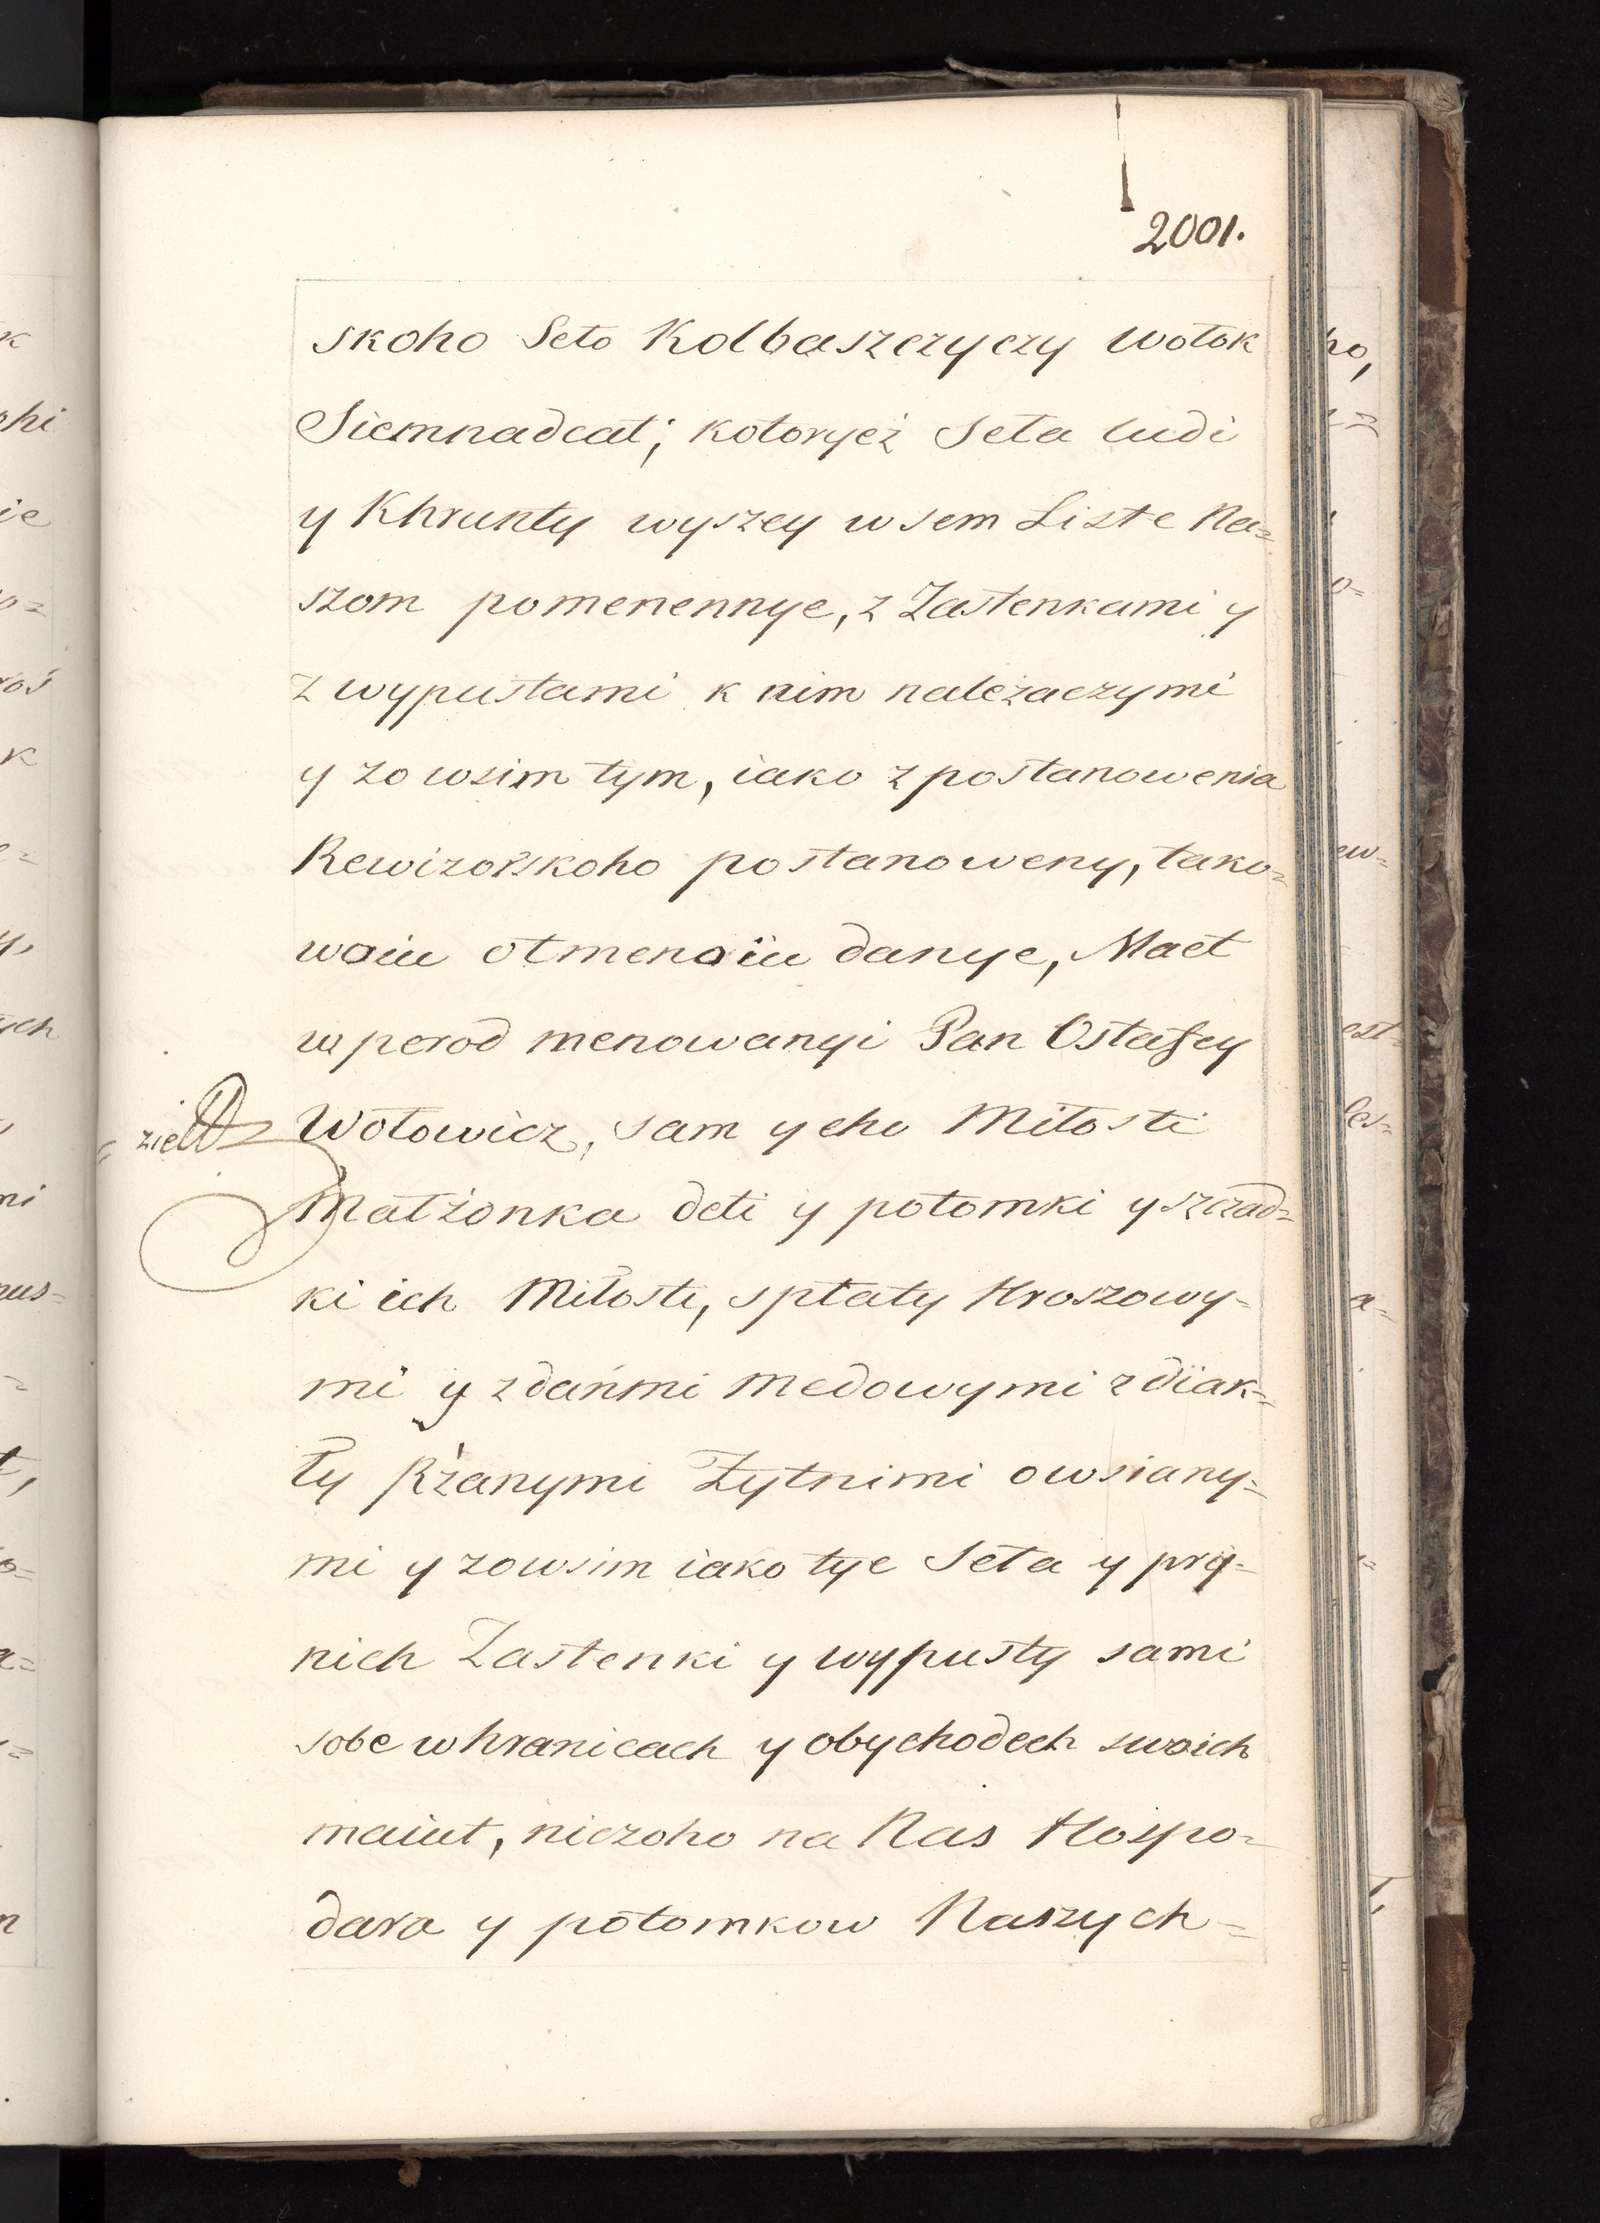 2001.
skoho Seto Kolbaszczyczy Wołok
Siemnadcat; kotoryeż Seła ludi
y Khrunty wyszey w sem Liste Na=
szom pomenennye, z Zastenkami y
z wypustami k nim należaczymi
y zo wsim tym, iako z postanowenia
Rewizorskoho postanoweny, tako=
woiu otmenoiu danye, Maet
w perod menowanyi Pan Ostafey
Wołowicz, sam y eho Miłosti
Małżonka deti y potomki y szczad=
ki ich Miłosti, s płaty Hroszowy=
mi y z dańmi Medowymi z diak=
ły Rżanymi Żytnimi owsiany=
mi y zowsim iako tye Seła y pry=
nich Zastenki y wypusty sami
sobe w hranicach y obychodech swoich
maiut, niczoho na Nas Hospo=
dara y potomkow Naszych=